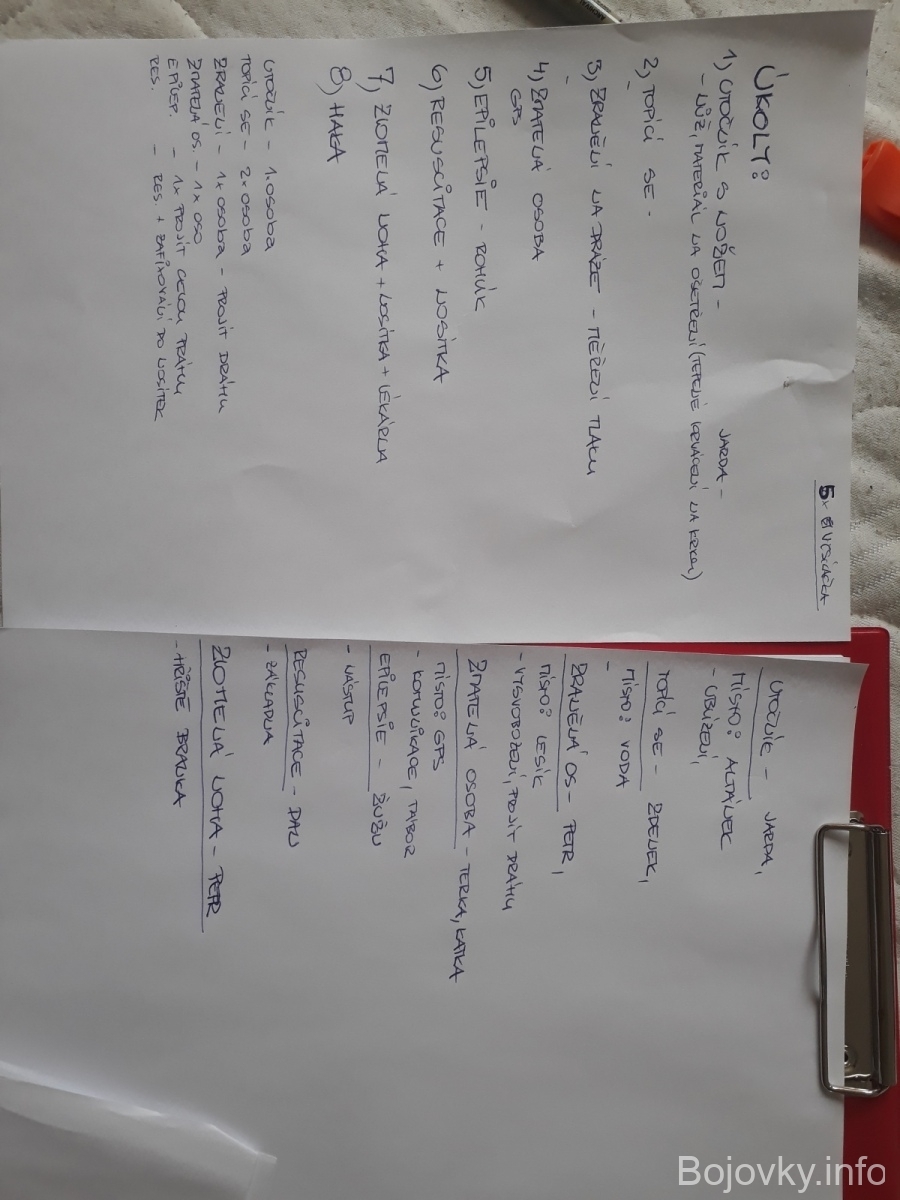 5x SVĚSÍAČKA
ÚKOLY:
1) ÚTOČNÍK S NOŽEM - JARDA -
- NŮŽ, MATERIÁL NA OŠETŘENÍ (TEPENÉ KRVÁCENÍ NA KRKU)
2) TOPÍCÍ SE -
-
3) ZRANĚNÍ NA DRÁZE - MĚŘENÍ TLAKU
-
4) ZMATENÁ OSOBA
GPS
5) EPILEPSIE - ROHÚK
6) RESUSCITACE + NOSÍTKA
7) ZLOMENÁ NOHA + NOSÍTKA + LÉKÁRNA
8) HAKA
ÚTOČNÍK - 1. OSOBA
TOPÍCÍ SE - 2x OSOBA
ZRANĚNÍ - 1x OSOBA - PROJÍT DRÁHU
ZMATENÁ OS. - 1x OSO
EPILEP. - 1x PROJÍT CELOU DRÁHU
RES. - RES. + ZAFIXOVÁNÍ DO NOSÍTEK
ÚTOČNÍK - JARDA,
MÍSTO: ALTÁNEK
- UBLÍŽENÍ,
TOPÍCÍ SE - ZDENEK,
MÍSTO: VODA
-
ZRANĚNÁ OS - PETR,
MÍSTO: LESÍK
- VYSVOBOZENÍ, PROJÍT DRÁHU
ZMATENÁ OSOBA - TERKA, KATKA
MÍSTO: GPS
- KOMUNIKACE, TÁBOR
EPILEPSIE - ŽUŽU
- NÁSTUP
RESUSCITACE - DAN
- ZÁKLADNA
ZLOMENÁ NOHA - PETR
- HŘIŠTĚ BRANKA
Bojovky.info